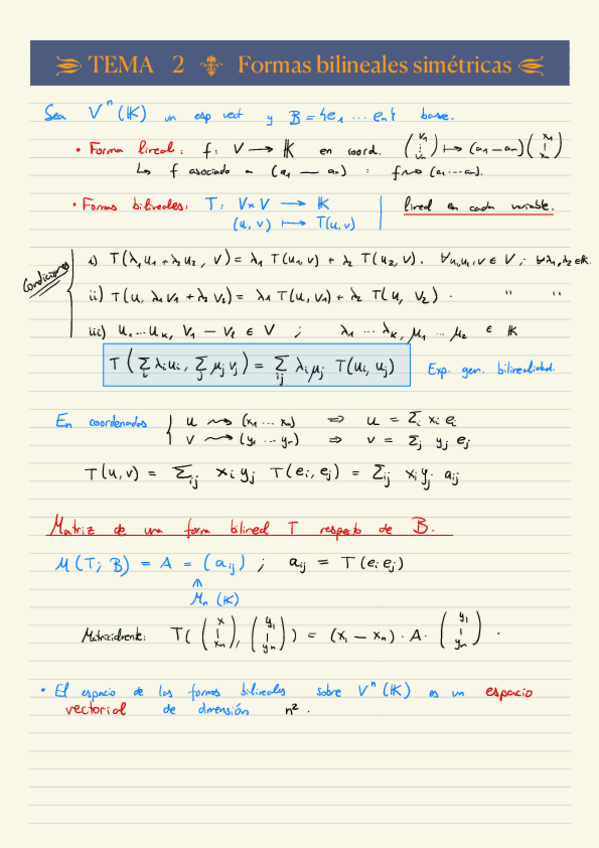 TEMA 2 Formas bilineales simétricas
Sea Vⁿ(𝕂) un esp vect y B = {e₁ ... eₙ} base.
• Forma lineal: f: V → 𝕂 en coord. (v₁ ⋮ vₙ) ↦ (a₁ — aₙ)(x₁ | xₙ)
↳ f asociado a (a₁ — aₙ) : f ⇝ (a₁ ... aₙ).
• Formas bilineales: T: V×V → 𝕂 | lineal en cada variable.
(u, v) ↦ T(u, v)
Condiciones
i) T(λ₁u₁ + λ₂u₂, v) = λ₁ T(u₁, v) + λ₂ T(u₂, v). ∀u₁, u₂, v ∈ V ; ∀λ₁, λ₂ ∈ 𝕂.
ii) T(u, λ₁v₁ + λ₂v₂) = λ₁ T(u, v₁) + λ₂ T(u, v₂) . " "
iii) u₁ ... uₖ, v₁ — vₗ ∈ V ; λ₁ ... λₖ, μ₁ ... μ₂ ∈ 𝕂
T(Σᵢ λᵢuᵢ, Σⱼ μⱼvⱼ) = Σᵢⱼ λᵢμⱼ T(uᵢ, uⱼ) Exp. gen. bilinealidad.
En coordenadas { u ⇝ (x₁ ... xₙ) ⇒ u = Σᵢ xᵢ eᵢ
v ⇝ (y₁ ... yₙ) ⇒ v = Σⱼ yⱼ eⱼ
T(u, v) = Σᵢⱼ xᵢ yⱼ T(eᵢ, eⱼ) = Σᵢⱼ xᵢ yⱼ aᵢⱼ
Matriz de una forma bilineal T respecto de B.
M(T; B) = A = (aᵢⱼ) ; aᵢⱼ = T(eᵢ eⱼ)
∧
Mₙ(𝕂)
Matricialmente: T((x | xₙ), (y₁ | yₙ)) = (x₁ — xₙ) · A · (y₁ | yₙ) .
• El espacio de las formas bilineales sobre Vⁿ(𝕂) es un espacio
vectorial de dimensión n² .